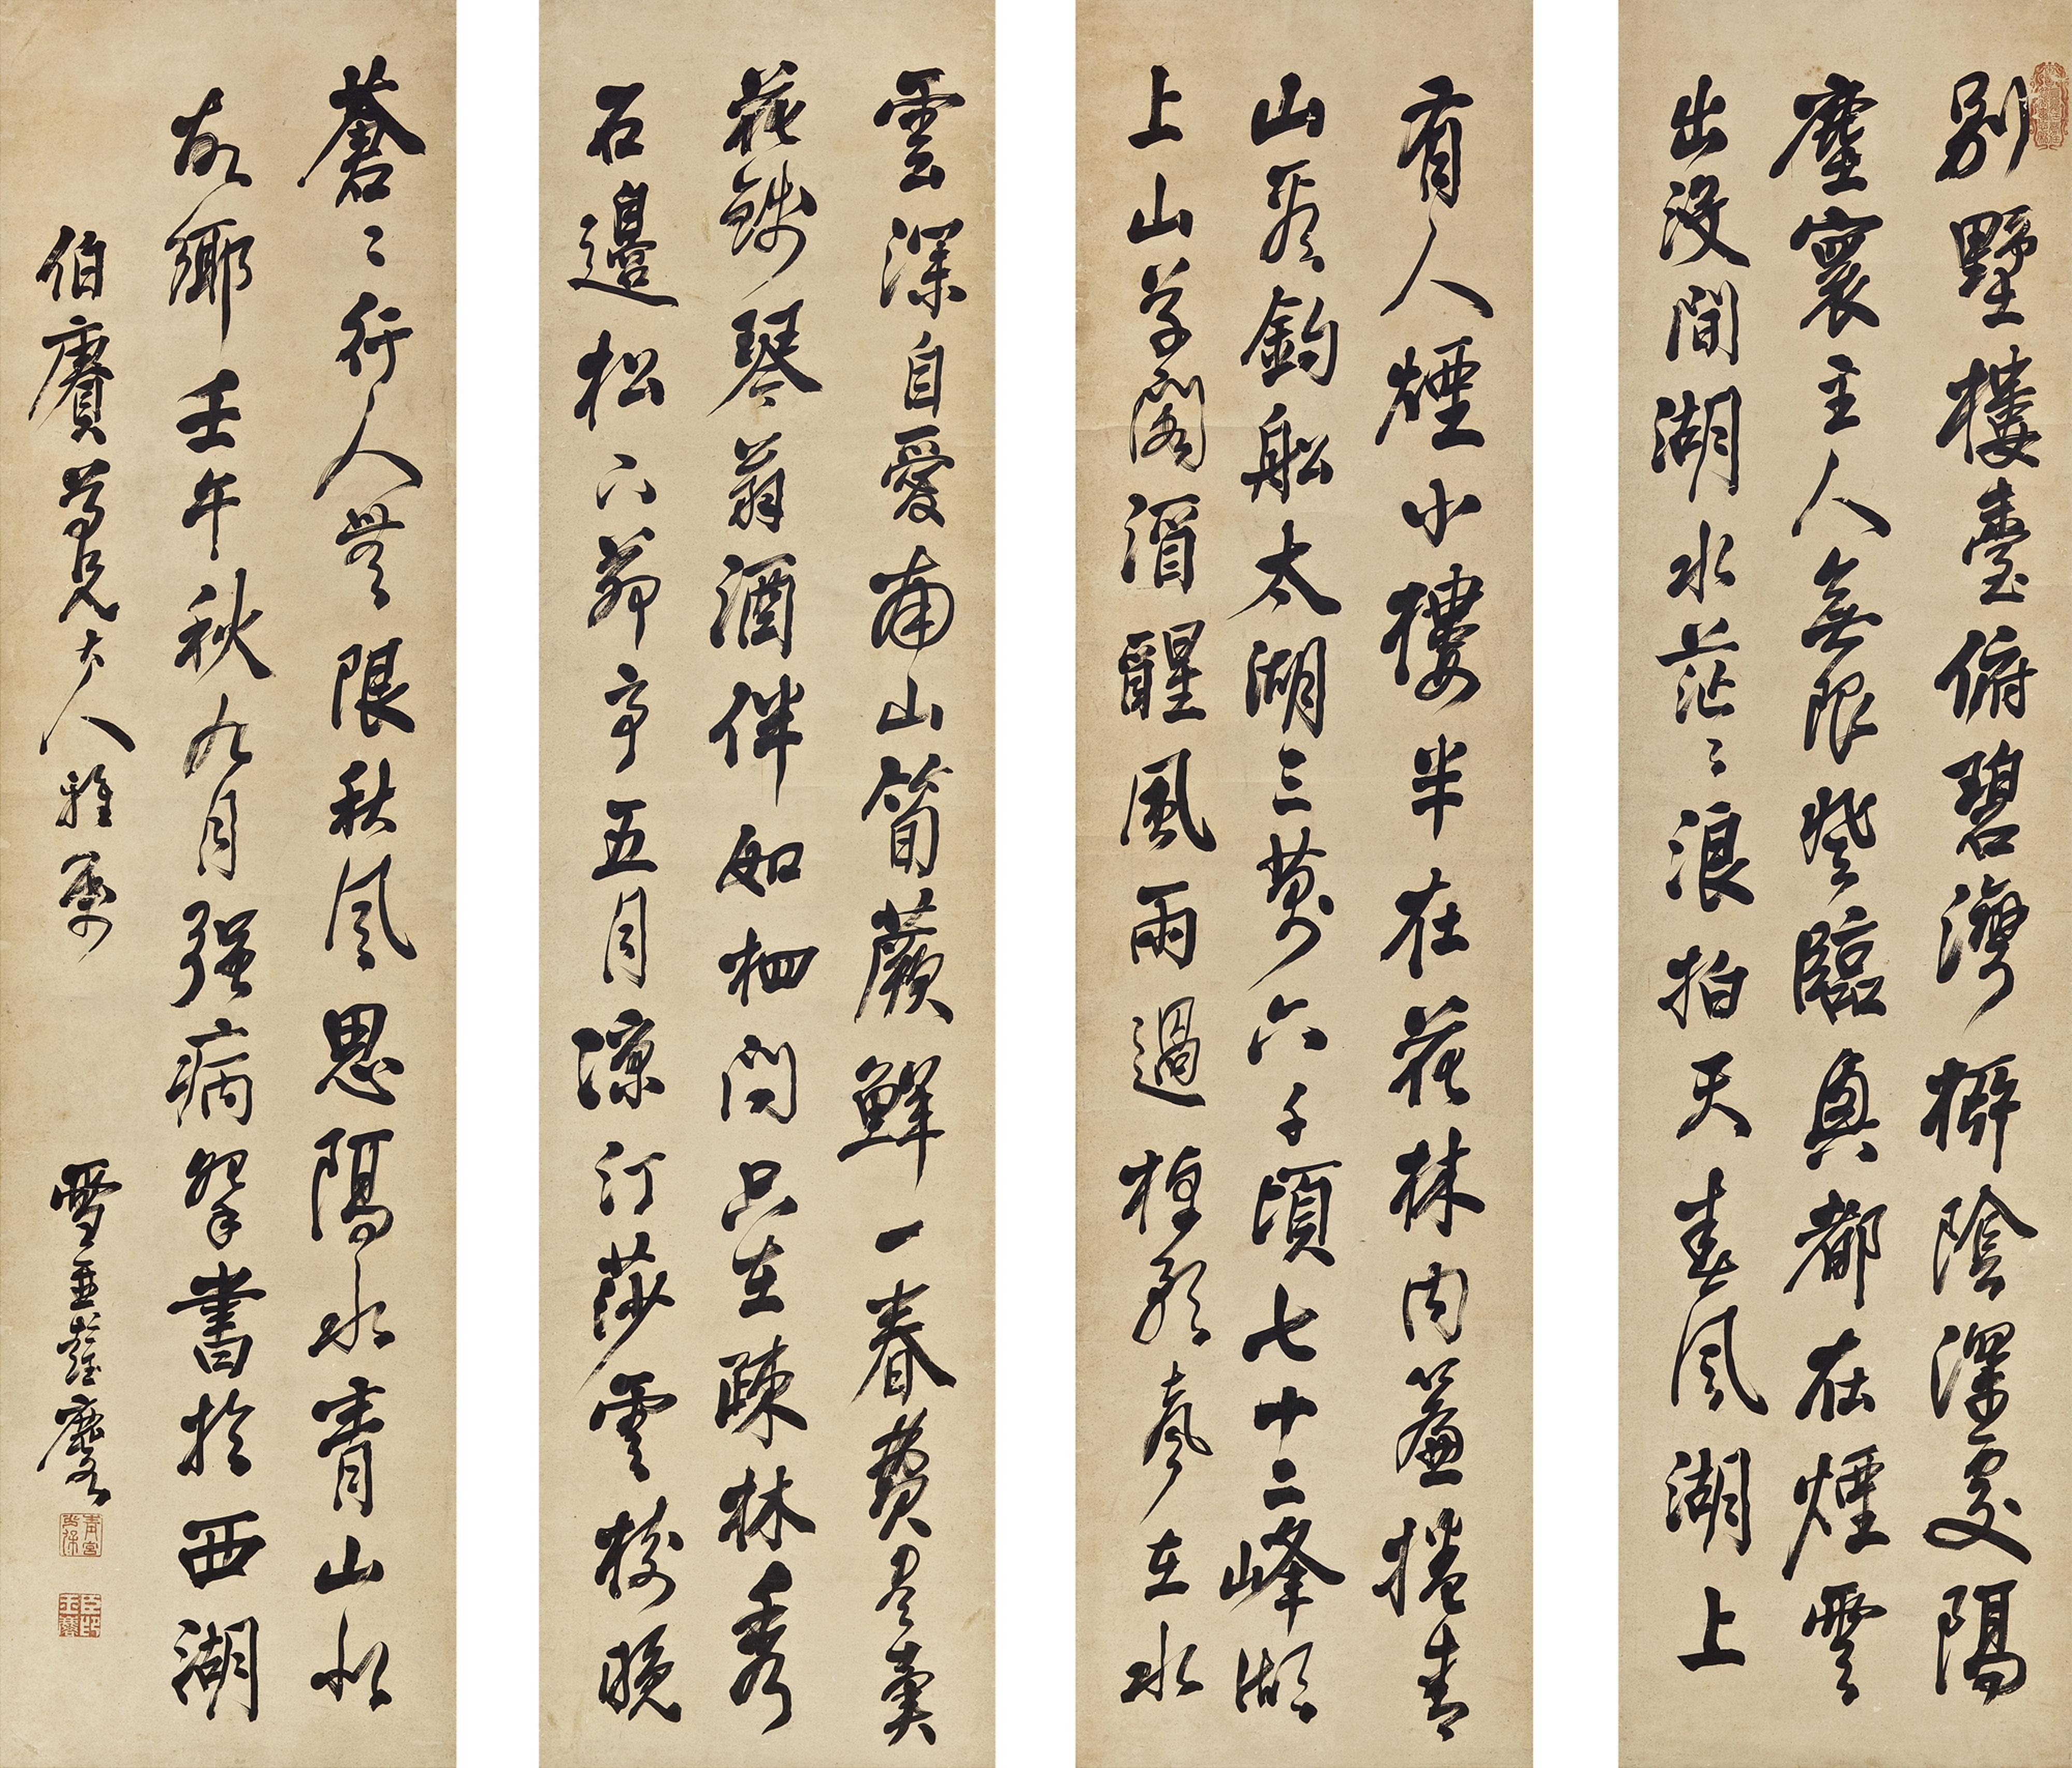 別墅樓臺俯碧灣檘陰深處隔
塵寰主人無限登臨興都在煙雲
出沒間湖水茫〻浪拍天春風湖上
有人煙小樓半在花林內簾捲青
山看釣船太湖三萬六千頃七十二峰湖
上山草閣酒醒風雨過櫂歌聲在水
雲深自愛南山筍蕨鮮一春費盡賣
花錢琴翁酒伴如相問只在疎林秀
石邊松下茆亭五月涼汀莎雲樹晚
蒼〻行人無限秋風思隔水青山似
故鄉壬午秋九月強病拏書於西湖
伯賡尊兄大人雅屬
雪